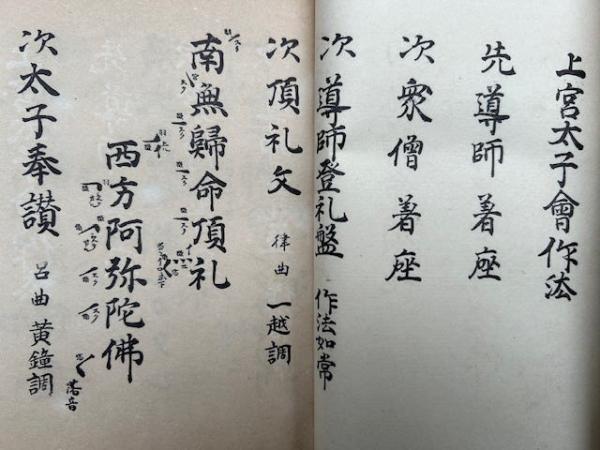 上宮太子會作法
先導師著座
次衆僧著座
次導師登礼盤 作法如常
次頂礼文 律曲 一越調
南無歸命頂礼
西方阿弥陀佛
落音
次太子奉讃 呂曲 黄鐘調